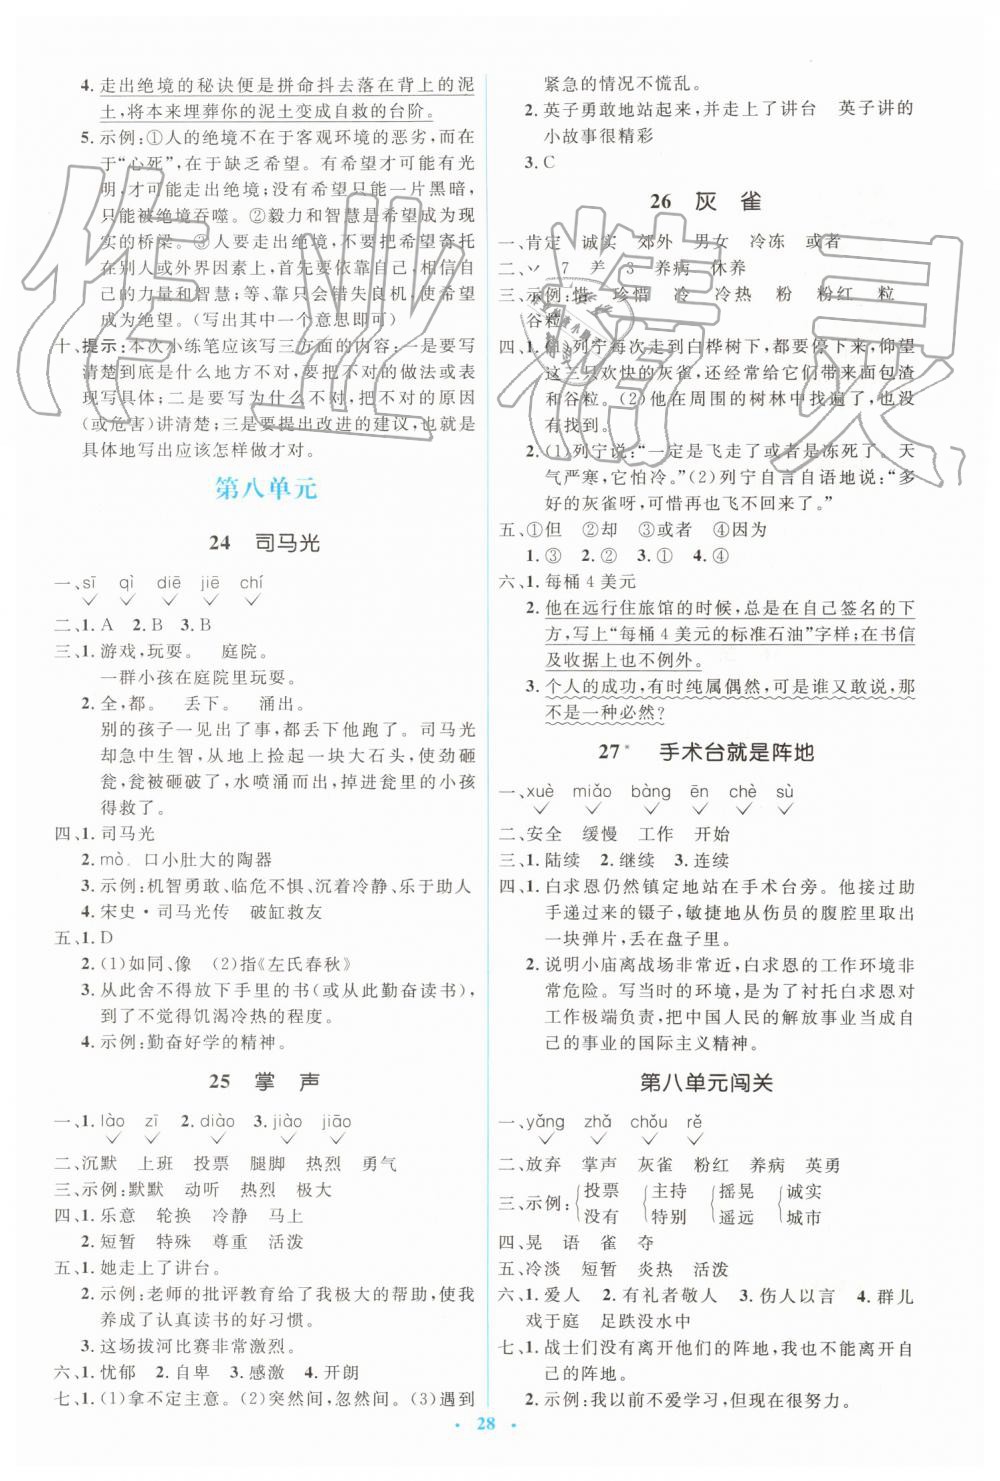 4. 走出绝境的秘诀便是拼命抖去落在背上的泥
土,将本来埋葬你的泥土变成自救的台阶。
5. 示例:①人的绝境不在于客观环境的恶劣,而在
于“心死”,在于缺乏希望。有希望才可能有光
明,才可能走出绝境;没有希望就只能是黑暗,
只能被绝境吞噬。②毅力和智慧是希望成为现
实的桥梁。③人要走出绝境,不能把希望寄托
在别人或外界因素上,首先要依靠的是自己
的力量和智慧;等、靠只会错失良机,使希望
成为绝望。(写出其中一个意思即可)
十、提示:本次小练笔应该写三方面的内容:一是要写
清楚到底是什么地方不对,要把不对的做法或表
现写具体;二是要写为什么不对,把不对的原因
(或危害)讲清楚;三是要提出改进的建议,也就是
具体地写出应该怎样做才对。
第八单元
24 司马光
一、sī qì diē jiē chí
二、1. A 2. B 3. B
三、1. 游戏,玩耍。 庭院。
一群小孩在庭院里玩耍。
2. 全,都。 丢下。 涌出。
别的孩子一见出了事,都丢下他跑了。司马光
却急中生智,从地上捡起一块大石头,使劲砸
瓮,瓮被砸破了,水喷涌而出,掉进瓮里的小孩
得救了。
四、1. 司马光
2. mò 口小肚大的陶器
3. 示例:机智勇敢、临危不惧、沉着冷静、乐于助人
4. 宋史·司马光传 破缸救友
五、1. D
2. (1)如同、像 (2)指《左氏春秋》
3. 从此舍不得放下手里的书(或从此勤奋读书),
到了不觉得饥渴冷热的程度。
4. 示例:勤奋好学的精神。
25 掌 声
一、1. lào zī 2. diào 3. jiào jiāo
二、沉默 上班 投票 腿脚 热烈 勇气
三、示例:默默 动听 热烈 极大
四、1. 乐意 轮换 冷静 马上
2. 短暂 特殊 尊重 活泼
五、1. 她走上了讲台。
2. 示例:老师的批评教育给了我极大的帮助,使我
养成了认真读书的好习惯。
3. 这场拔河比赛非常激烈。
六、1. 忧郁 2. 自卑 3. 感激 4. 开朗
七、1. (1)拿不定主意。(2)突然间,忽然间。(3)遇到
紧急的情况不慌乱。
2. 英子勇敢地站起来,并走上了讲台 英子讲的
小故事很精彩
3. C
26 灰 雀
一、肯定 诚实 郊外 男女 冷冻 或者
二、丷 7 养 3 养病 休养
三、示例:惜 珍惜 冷 冷热 粉 粉红 粒
谷粒
四、1. (1)列宁每次走到白桦树下,都要停下来,仰望
这三只欢快的灰雀,还经常给它们带来面包渣
和谷粒。(2)他在周围的树林中找遍了,也没
有找到。
2. (1)列宁说:“一定是飞走了或者是冻死了。天
气严寒,它怕冷。”(2)列宁自言自语地说:“多
好的灰雀呀,可惜再也飞不回来了。”
五、①但 ②却 ③或者 ④因为
1. ③ 2. ② 3. ① 4. ④
六、1. 每桶4美元
2. 他在远行住旅馆的时候,总是在自己签名的下
方,写上“每桶4美元的标准石油”字样;在书信
及收据上也不例外。
3. 个人的成功,有时纯属偶然,可是谁又敢说,那
不是一种必然?
27* 手术台就是阵地
一、xuè miǎo bàng ēn chè sù
二、安全 缓慢 工作 开始
三、1. 陆续 2. 继续 3. 连续
四、1. 白求恩仍然镇定地站在手术台旁。他接过助
手递过来的镊子,敏捷地从伤员的腹腔里取出
一块弹片,丢在盘子里。
2. 说明小庙离战场非常近,白求恩的工作环境非
常危险。写当时的环境,是为了衬托白求恩对
工作极端负责,把中国人民的解放事业当成自
己的事业的国际主义精神。
第八单元闯关
一、yǎng zhǎ chǒu rě
二、放弃 掌声 灰雀 粉红 养病 英勇
三、示例:{投票 没有 {主持 特别 {摇晃 遥远 {诚实 城市
四、晃 语 雀 夺
五、冷淡 短暂 炎热 活泼
六、1. 爱人 2. 有礼者敬人 3. 伤人以言 4. 群儿
戏于庭 足跌没水中
七、1. 战士们没有离开他们的阵地,也不能离开自
己的阵地。
2. 示例:我以前不爱学习,但现在很努力。
28
作业精灵